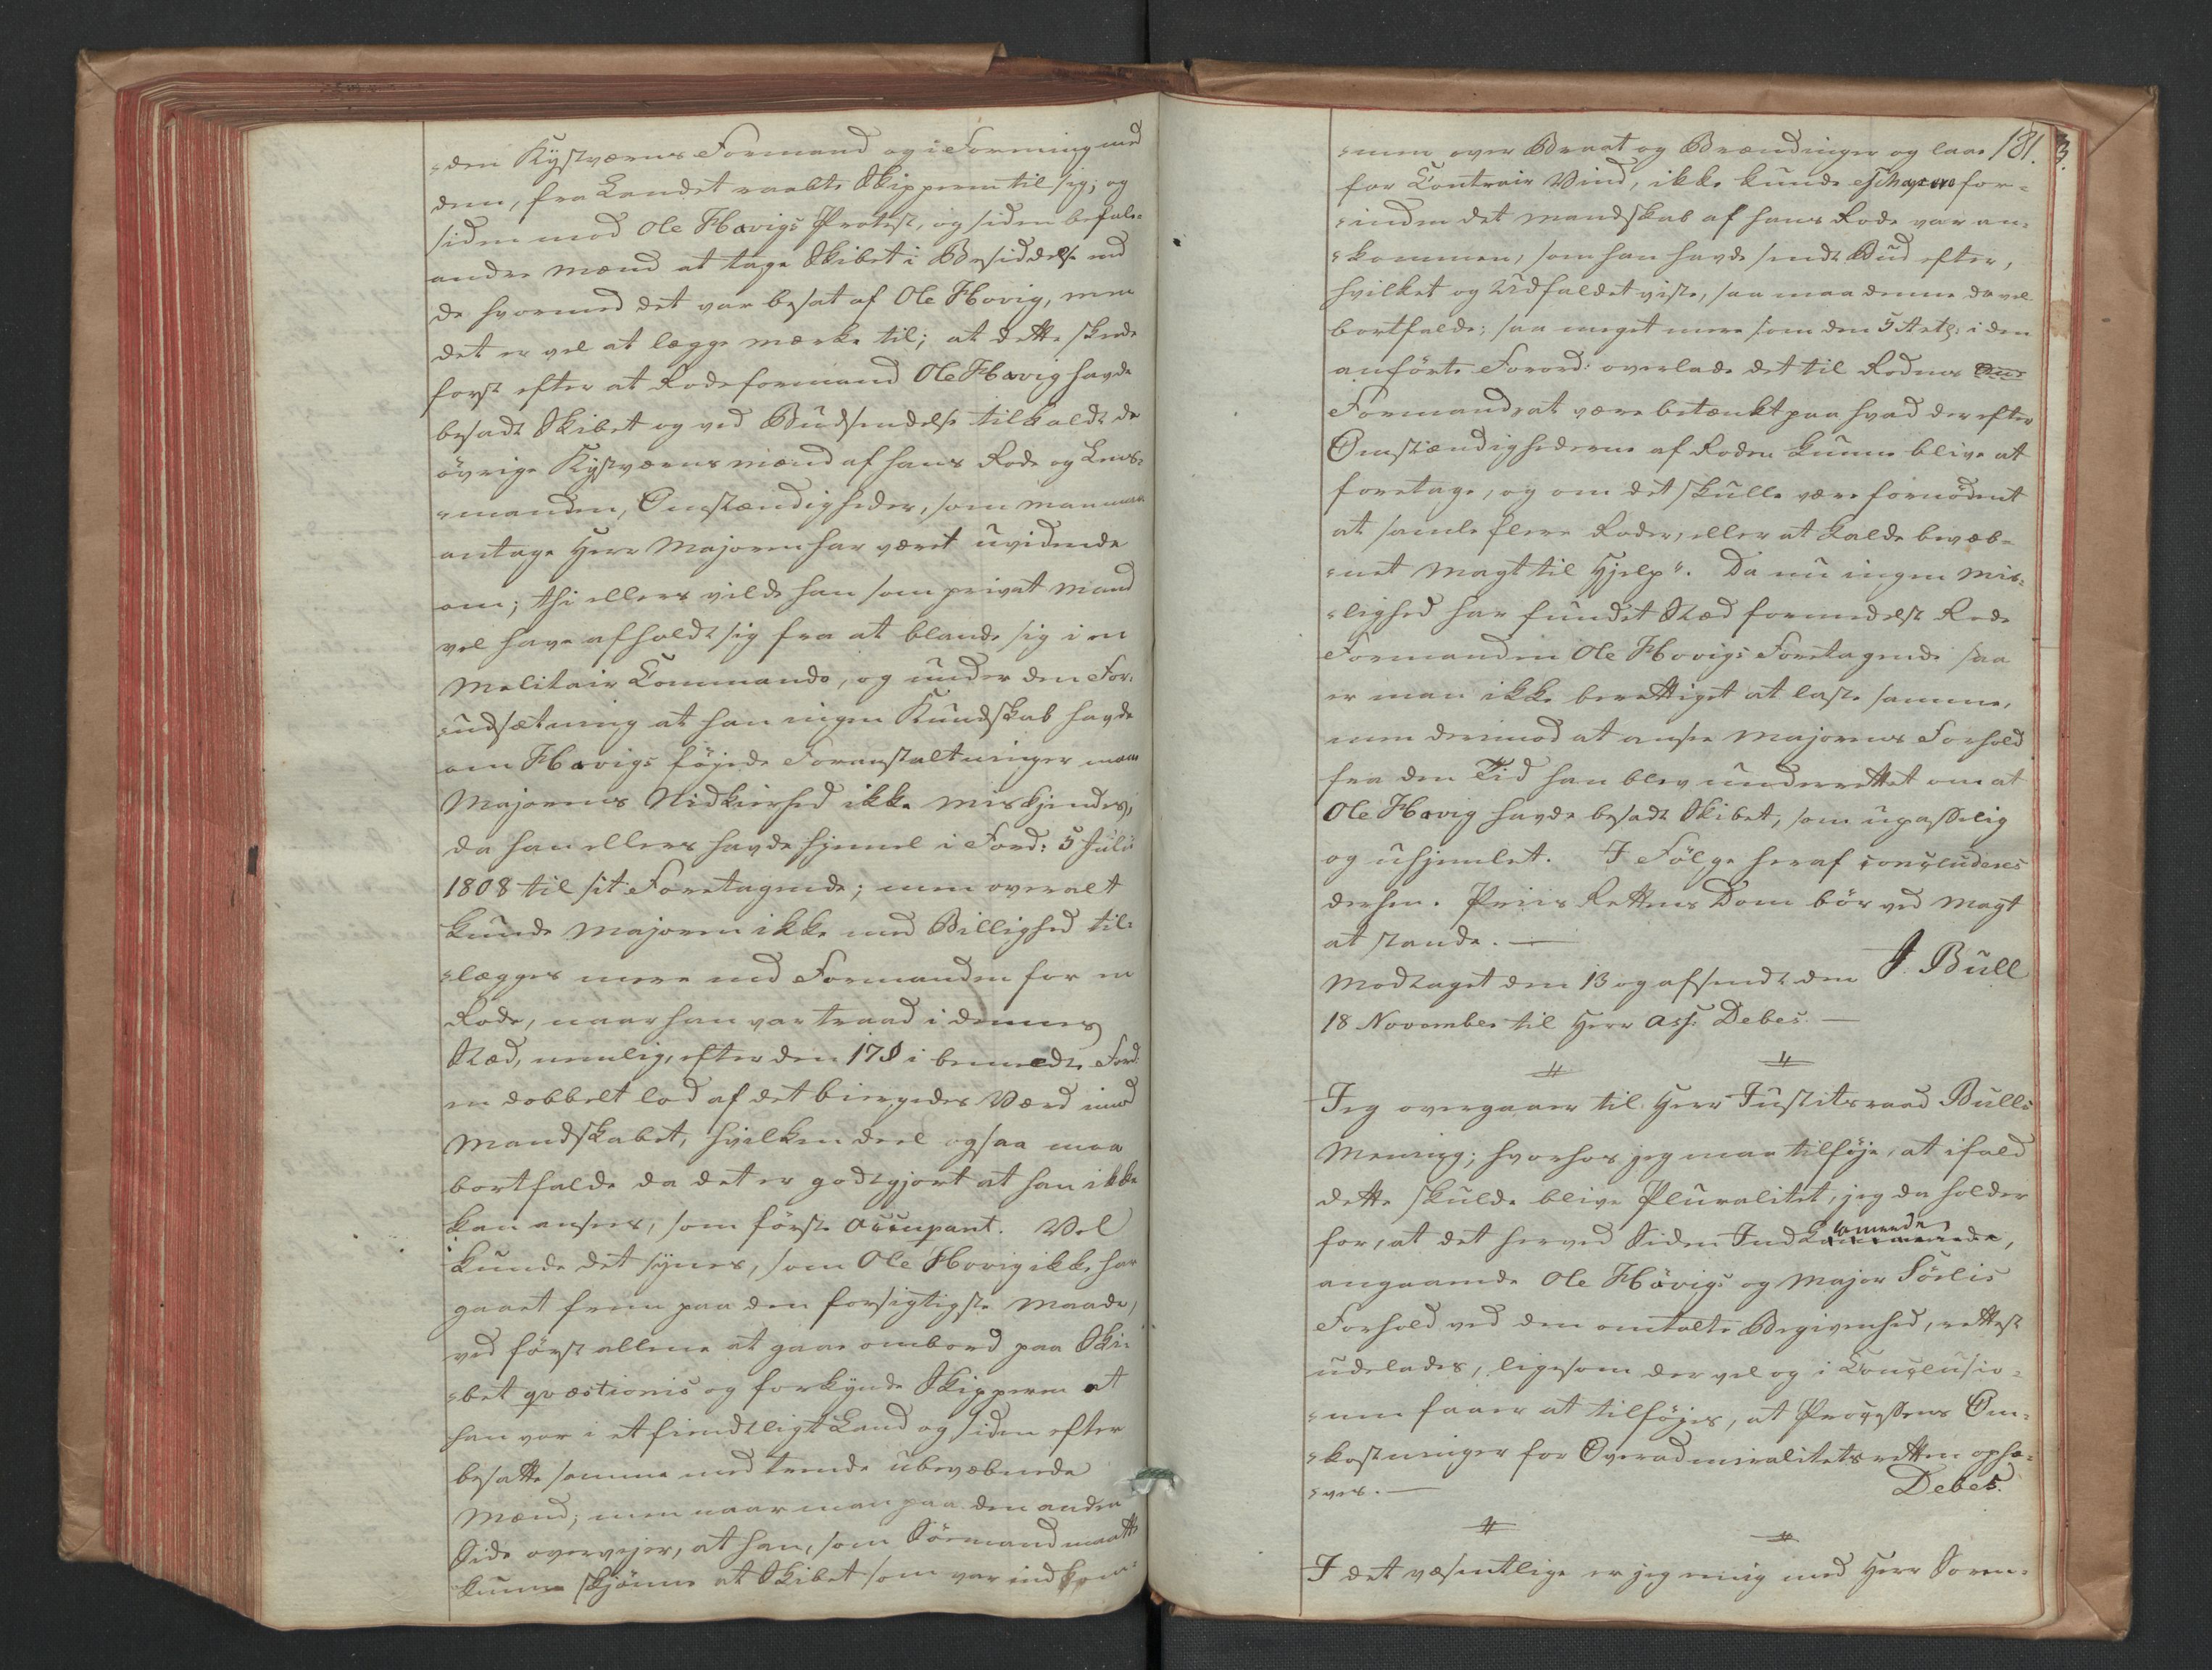 den Kystværns Formand og i Forening med
dem, fra Landet raabte Skipperen til sig, og
siden mod Ole Hovigs Protest, og siden befale
andre Mænd at tage Skibet i Besiddelse end
de hvormed det var besat af Ole Hovig, men
det er vel at lægge mærke til; at dette skede
først efter at Rodeformand Ole Hovig havde
besadt Skibet og ved Budsendelse tilkaldt de
övrige Kystværnsmænd af hans Rode og Lens-
-manden, Omstændigheder, som man maa
antage Herr Majoren har været uvidende
om; thi ellers vilde han som privat Mand
vel have afholdt sig fra at blande sig i en
Melitair Commando, og under den For-
-udsætning at han ingen Kundskab havde
om Hovigs föiede Foranstaltninger maa
Majorens Nidkierhed ikke miskjendes,
da han ellers havde hjemmel i Ford: 5 Julii
1808 til sit Foretagende; men overalt
kunde Majoren ikke med Billighed til-
-lægges mere end Formanden for en
Rode, naar han var traad i dennes
Stæd, nemlig, efter den 17 § i bemeldte Ford:
en dobbelt lod af det biergedes Værd imod
Mandskabet, hvilken deel ogsaa maa
bortfalde da det er godtgjort at han ikke
kan ansees, som förste Occupant. Vel
kunde det synes, som Ole Hovig ikke har
gaaet frem paa den forsigtigste Maade,
ved först allene at gaae ombord paa Ski-
-bet qvæstionis og forkynde Skipperen at
han var i et fiendtligt Land og siden efter
besatte samme med trende ubevæbnede
Mænd; men naar man paa den anden
Side overvejer, at han, som Sömand maatte
kunne skjönne at Skibet som var indkom-
181.
3
-men over Braat og Brændinger og laae
for Contrair Vind, ikke kunde eschapere for-
-inden det Mandskab af hans Rode var an-
-kommen, som han havde sendt Bud efter,
hvilket og Udfaldet viste, saa maa denne da vel
bortfalde; saa meget mere som den 5 Art: i den
anförte Forord: overlade det til Rodens
Formand, at være betænkt paa hvad der efter
Omstændighederne af Roden kunne blive at
foretage, og om det skulle være fornödent
at samle flere Roder, eller at kalde bevæb-
-net Magt til Hjelp". Da nu ingen Mis-
-lighed har fundet Stæd formedelst Rode
Formanden Ole Hovigs Foretagende saa
er man ikke berettiget at laste samme,
men derimod at ansee Majorens Forhold
fra den Tid han blev underrettet om at
Ole Hovig havde besadt Skibet, som upasselig
og uhjemlet. I Fölge heraf concluderes
derhen. Priis Rettens Dom bör ved Magt
at stande. —
J. Bull
Modtaget den 13 og afsendt den
18 November til Herr Ass: Debes. —
Jeg overgaaer til Herr Justitsraad Bulls
Mening; hvorhos jeg maa tilföje, at ifald
dette skulde blive Pluralitet, jeg da holder
for, at det herved siden Indkommende,
angaaende Ole Hövigs og Major Sörlis
Forhold ved den omtalte Begivenhed, rettest
udelades, ligesom der vel og i Conclusio-
-nen faaer at tilföjes, at Processens Om-
-kostninger for Overadmiralitetsretten ophæ-
-ves. —
Debes.
I det væsentlige er jeg enig med Herr Soren-